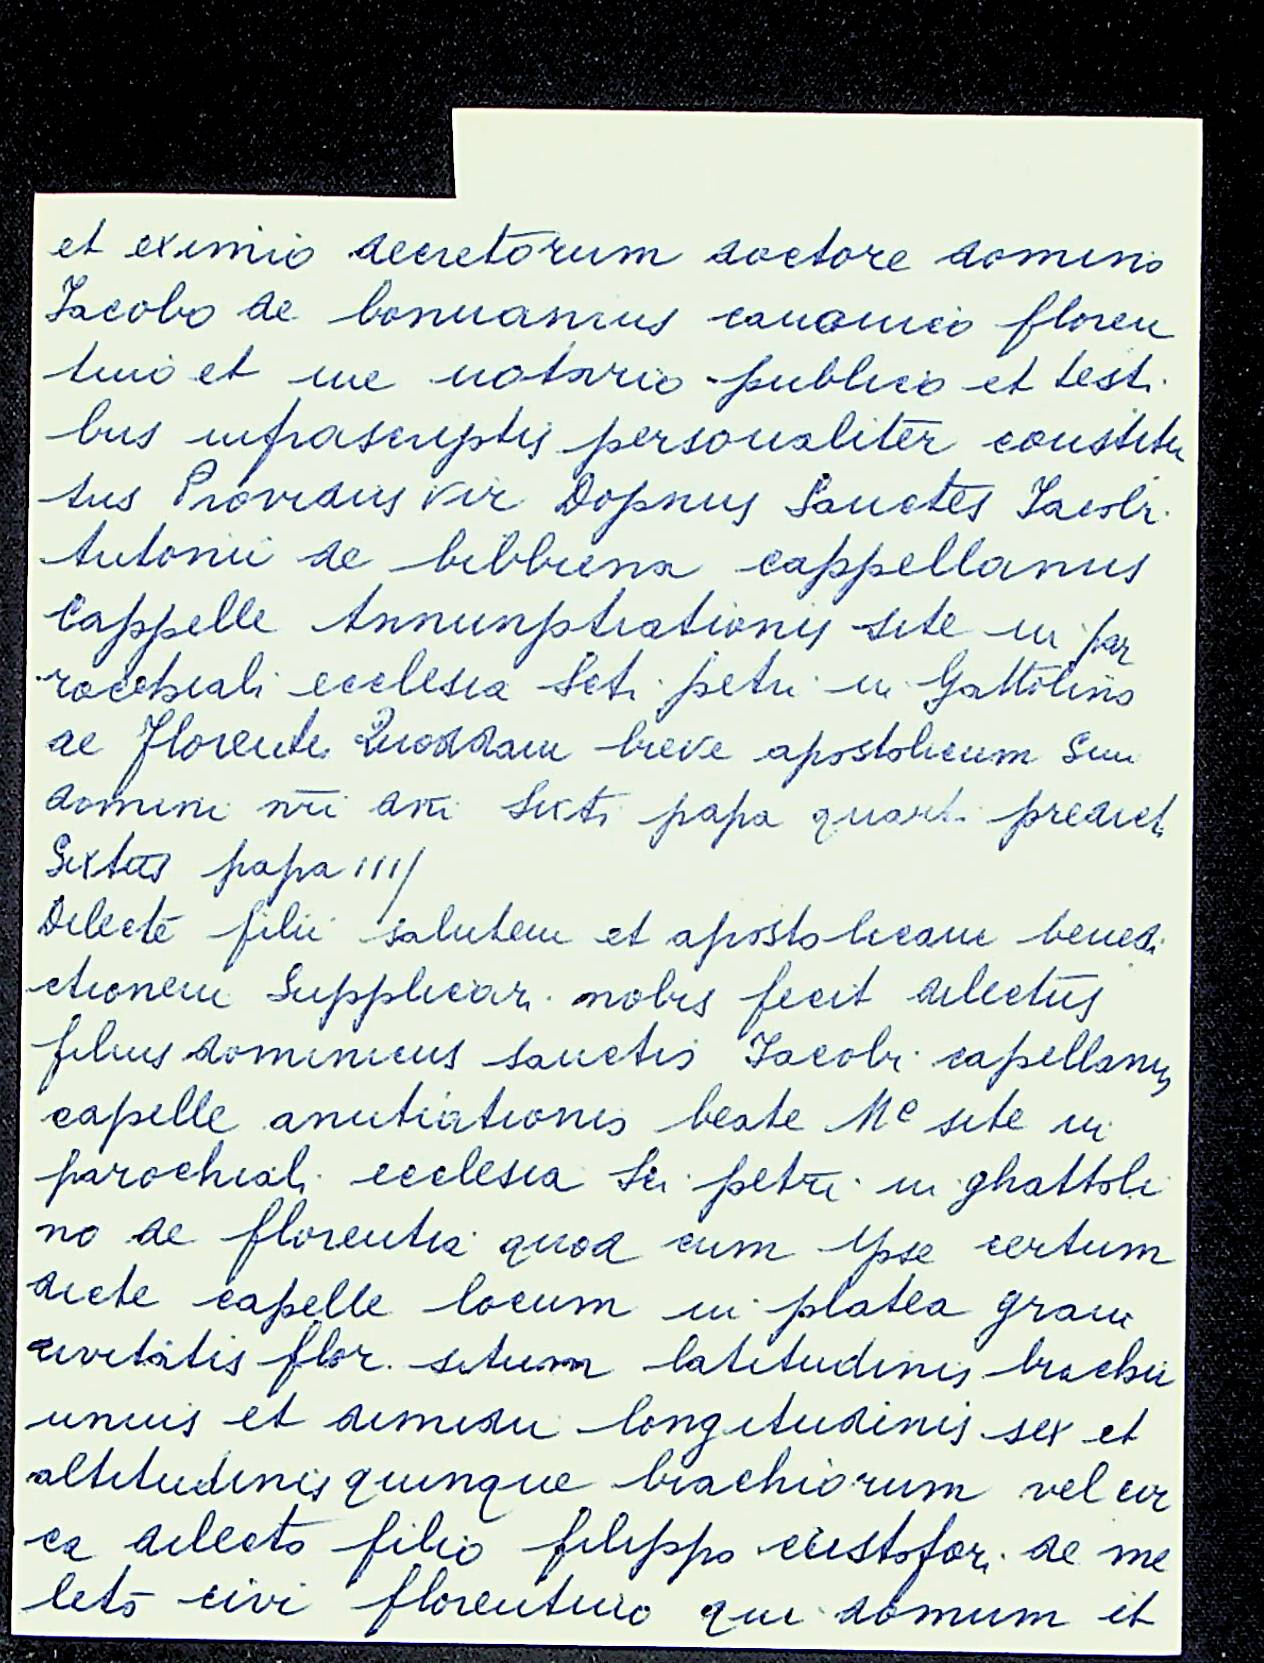 et eximio decretorum doctore domino
Jacobo de bonuanius canonico floren
tino et me notario publico et testi
bus infrascriptis personaliter constitu
tus Providus vir Dopnus Sanctes Jacobi
Antonii de bibbiena cappellanus
Cappelle Annunptiationis site in par
rocchiali ecclesia Scti petri in Gattolino
de Florentia Quoddam breve apostolicum
domini nri dni Sixti papa quarti predicti
Sixtus papa IIII
Dilecte filii salutem et apostolicam benedi
ctionem Supplicari nobis fecit dilectus
filius dominicus sanctis Jacobi capellanus
capelle anutiationis beate Me site in
parochiali ecclesia Sci petri in ghattoli
no de florentia quod cum ipse certum
dicte capelle locum in platea grani
civitatis flor. situm latitudinis brachii
unius et dimidii longitudinis sex et
altitudinis quinque brachiorum vel cir
ca dilecto filio filippo cristofori de me
leto civi florentino qui domum et